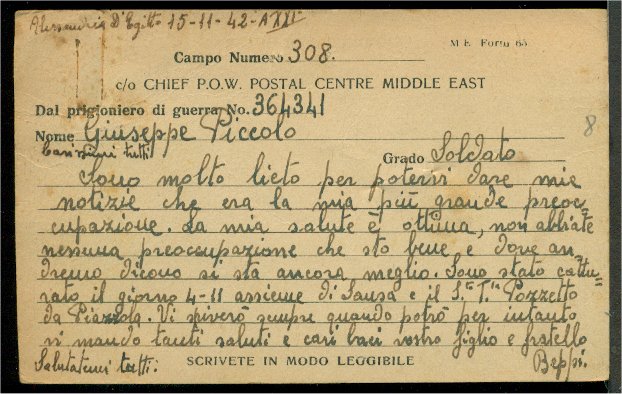 Alessandria D'Egitto 15-11-42-A XXI
Campo Numero 308.
M.E. Form 63.
c/o CHIEF P.O.W. POSTAL CENTRE MIDDLE EAST
Dal prigioniero di guerra No. 364341
8
Nome Giuseppe Piccolo
Carissimi tutti
Grado Soldato
Sono molto lieto per potervi dare mie
notizie che era la mia più grande preoc=
cupazione. La mia salute è ottima, non abbiate
nessuna preoccupazione che sto bene e dove an=
dremo dicono si sta ancora meglio. Sono stato cattu=
rato il giorno 4-11 assieme di Sausa e il S. T. Pozzetto
da Piazzola. Vi scriverò sempre quando potrò per intanto
vi mando tanti saluti e cari baci vostro figlio e fratello
Salutatemi tutti.
SCRIVETE IN MODO LEGGIBILE
Beppi.